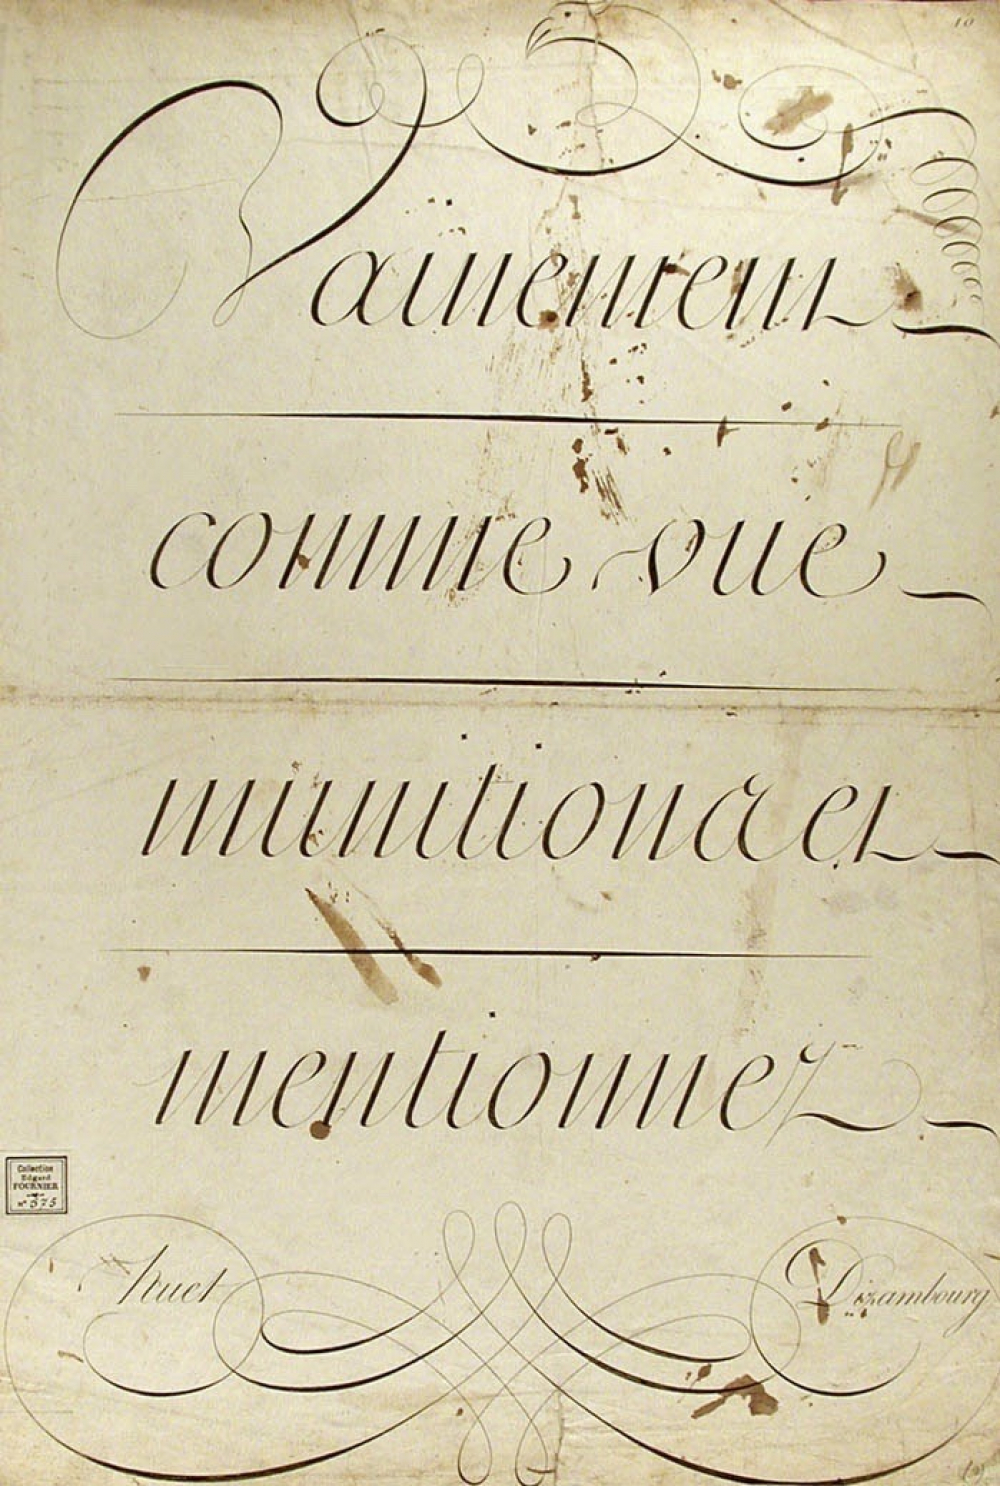 10
Vainement
comme vue
munition a et
mentionnez
Collection
Edgard
FOURNIER
n° 375
huet Dizambourg